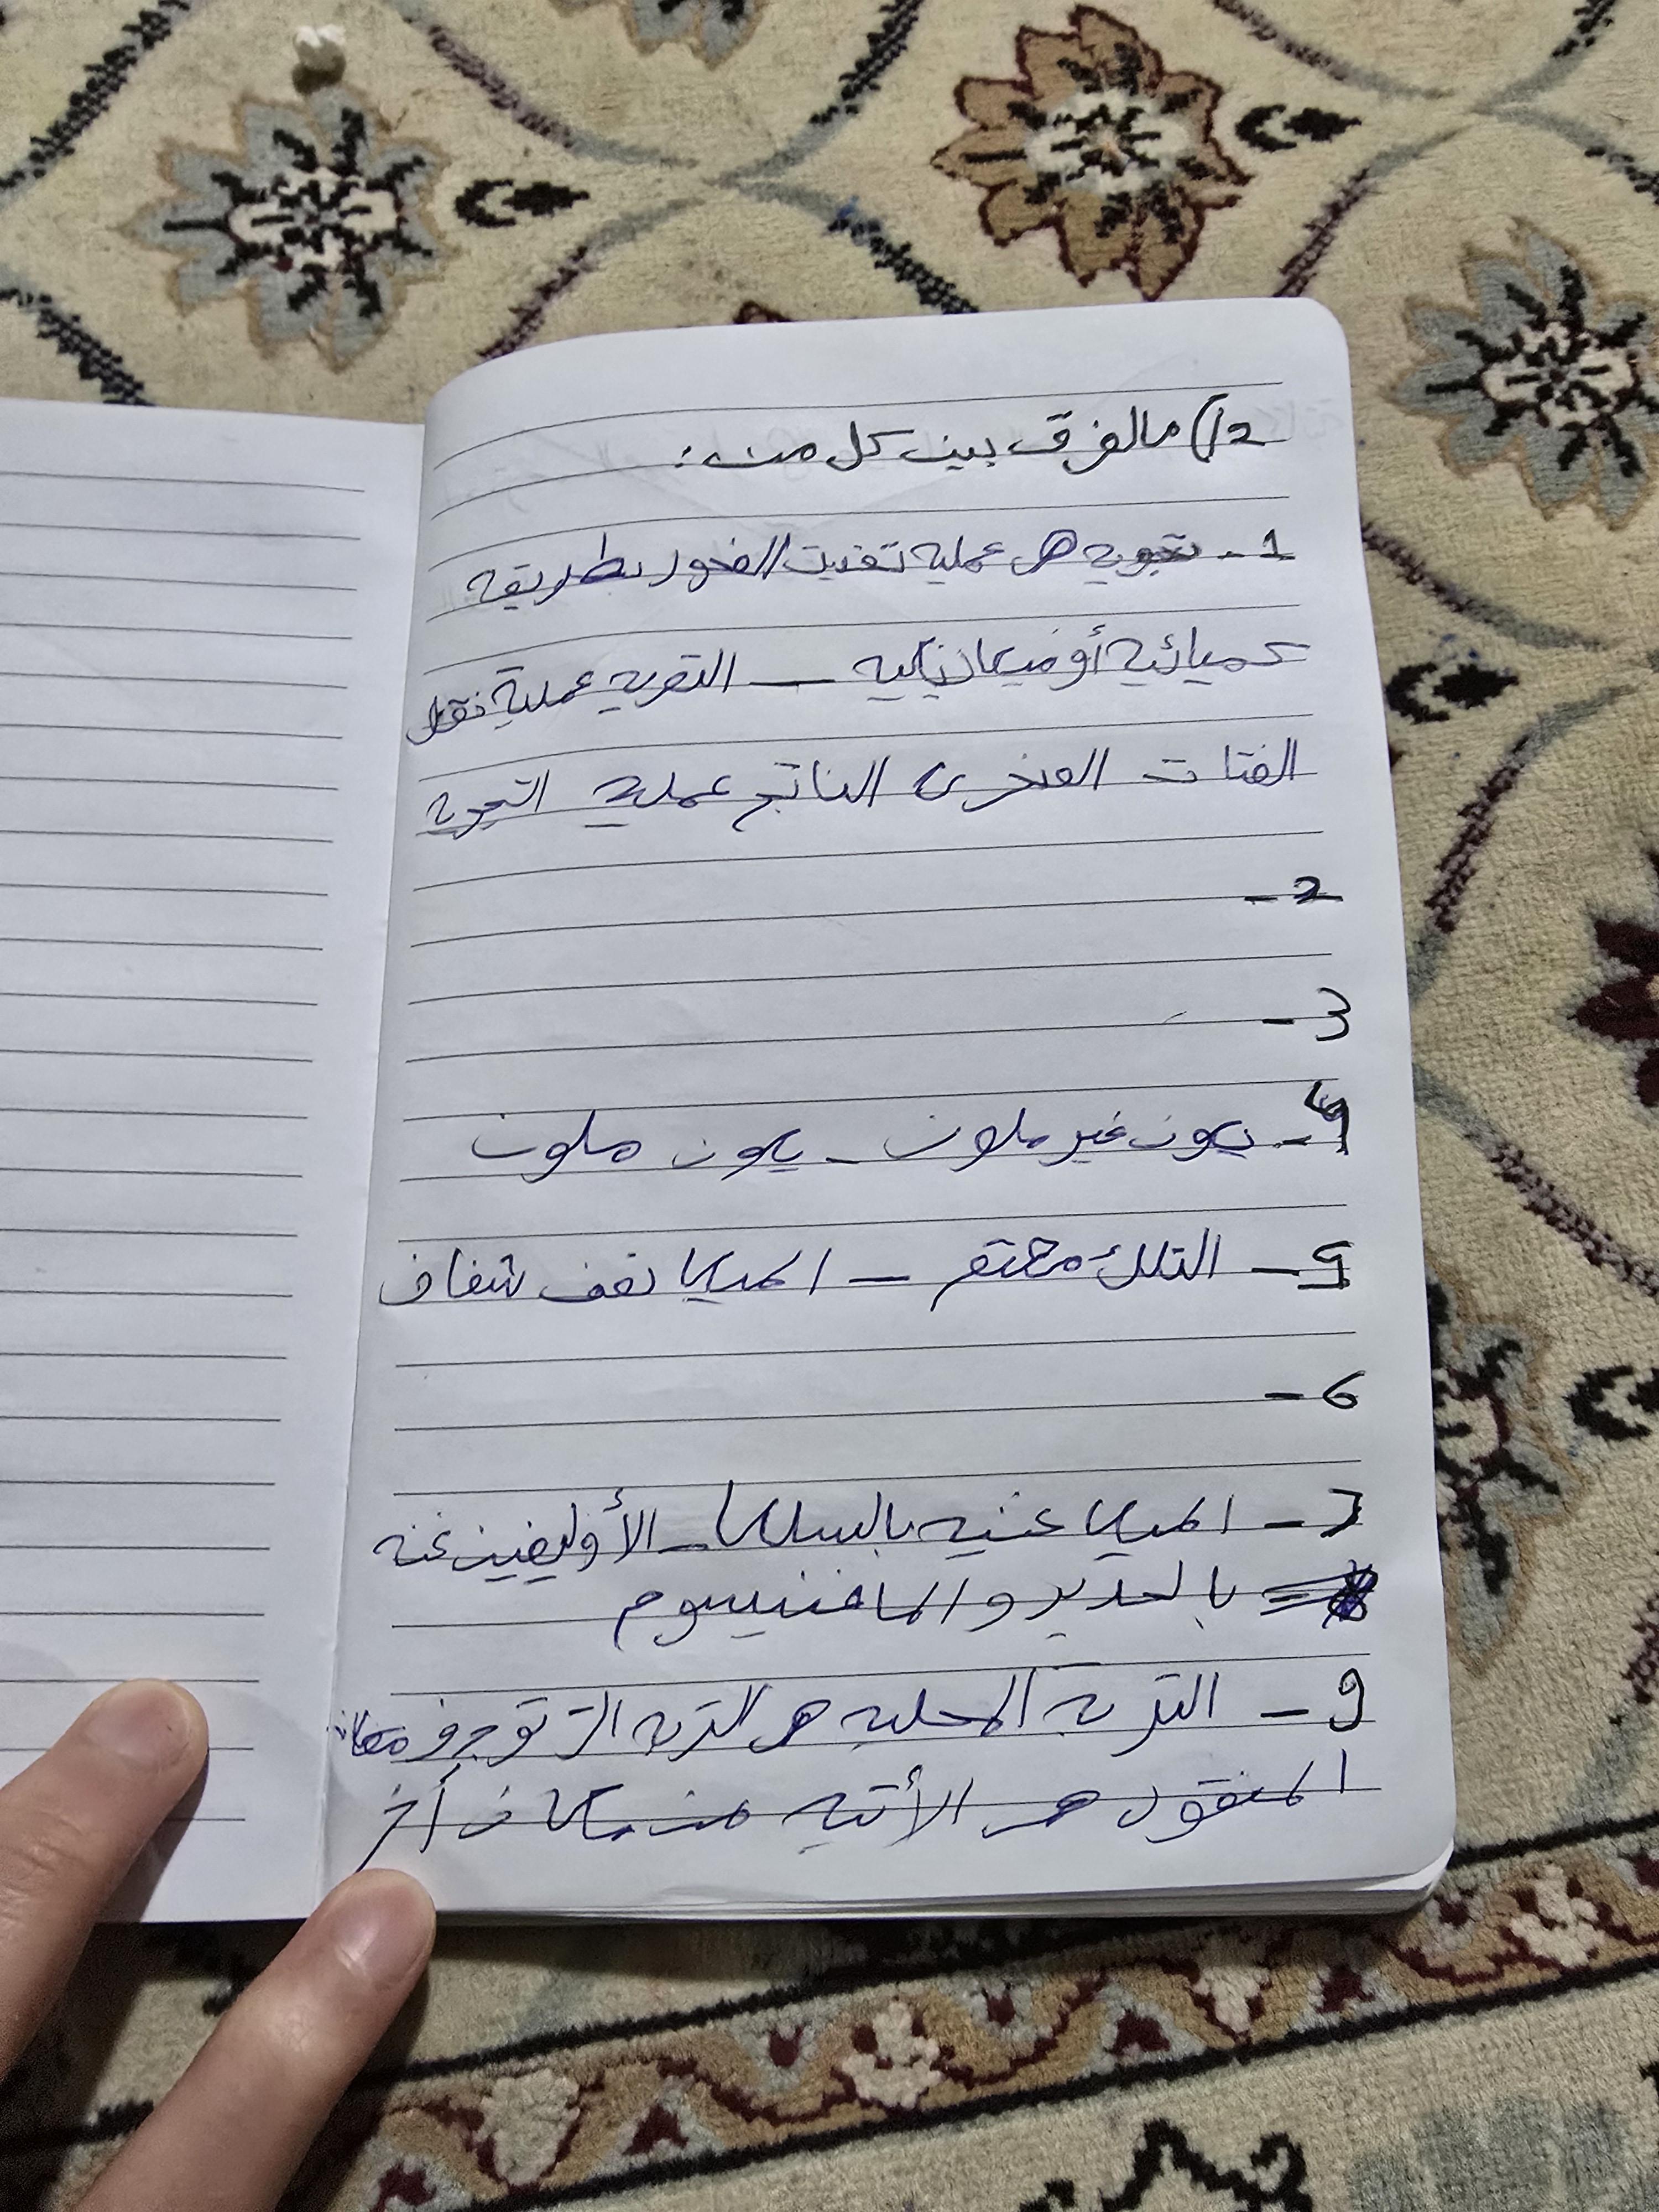 2/) مالفرق بين كل من:
1- تجويه هي عمليه تفتيت الصخور بطريقه
كميائية أو ميكانيكيه — التعريه عملية نقل
الفتات الصخرى الناتج عمليه التجويه
2-
3-
4- يكون غير ملون - يكون ملون
5- التلك معتم - الميكا نصف شفاف
6-
7- الميكا غنيه بالسلكا - الأوليفين غنه
بالحديد والماغنيسوم
9- التربه المحليه هي التربه التي توجد في مكانه
المنقول هي الأتيه من مكان أخر